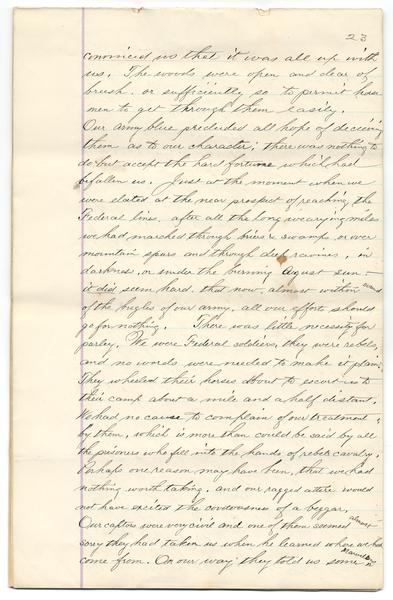 23
convinced us that it was all up with
us. The woods were open and clear of
brush. or sufficiently so to permit horse
men to get through them easily.
Our army blue precluded all hope of deceiving
them as to our character; there was nothing to
do but accept the hard fortune which had
befallen us. Just at the moment when we
were elated at the near prospect of reaching the
Federal lines. after all the long wearying miles
we had marched through briers & swamps, or over
mountain spurs and through deep ravines, in
darkness, or under the burning August sun—
it did seem hard, that now, almost within sound
of the bugles of our army, all our efforts should
go for nothing. There was little necessity for
parley. We were Federal soldiers, they were rebels
and no words were needed to make it plain.
They wheeled their horses about to escort us to
their camp about a mile and a half distant.
We had no cause to complain of our treatment
by them, which is more than could be said by all
the prisoners who fell into the hands of rebel cavalry.
Perhaps one reason may have been, that we had
nothing worth taking, and our ragged attire would
not have excited the covetousness of a beggar.
Our captors were very civil and one of them seemed almost
sorry they had taken us when he learned where we had
come from. On our way they told us some